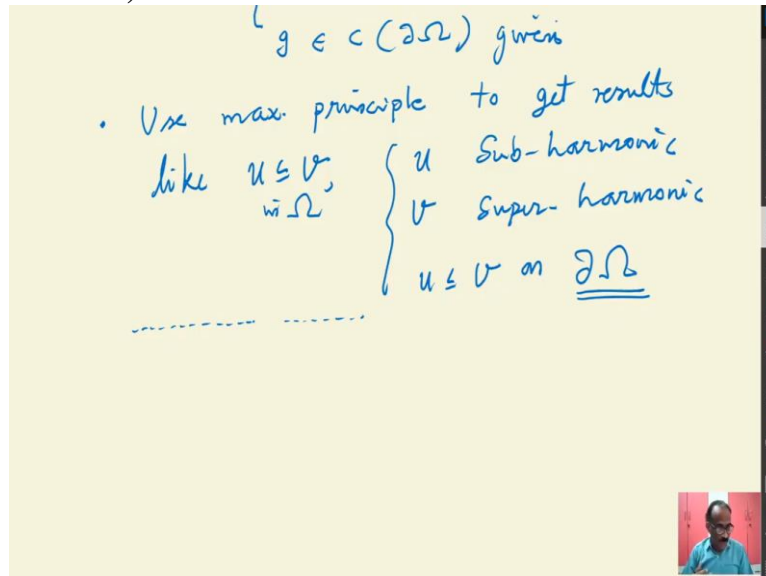 g ∈ C(∂Ω) given
• Use max. principle to get results
like u ≤ v, { u Sub-harmonic
in Ω v Super-harmonic
u ≤ v on ∂Ω